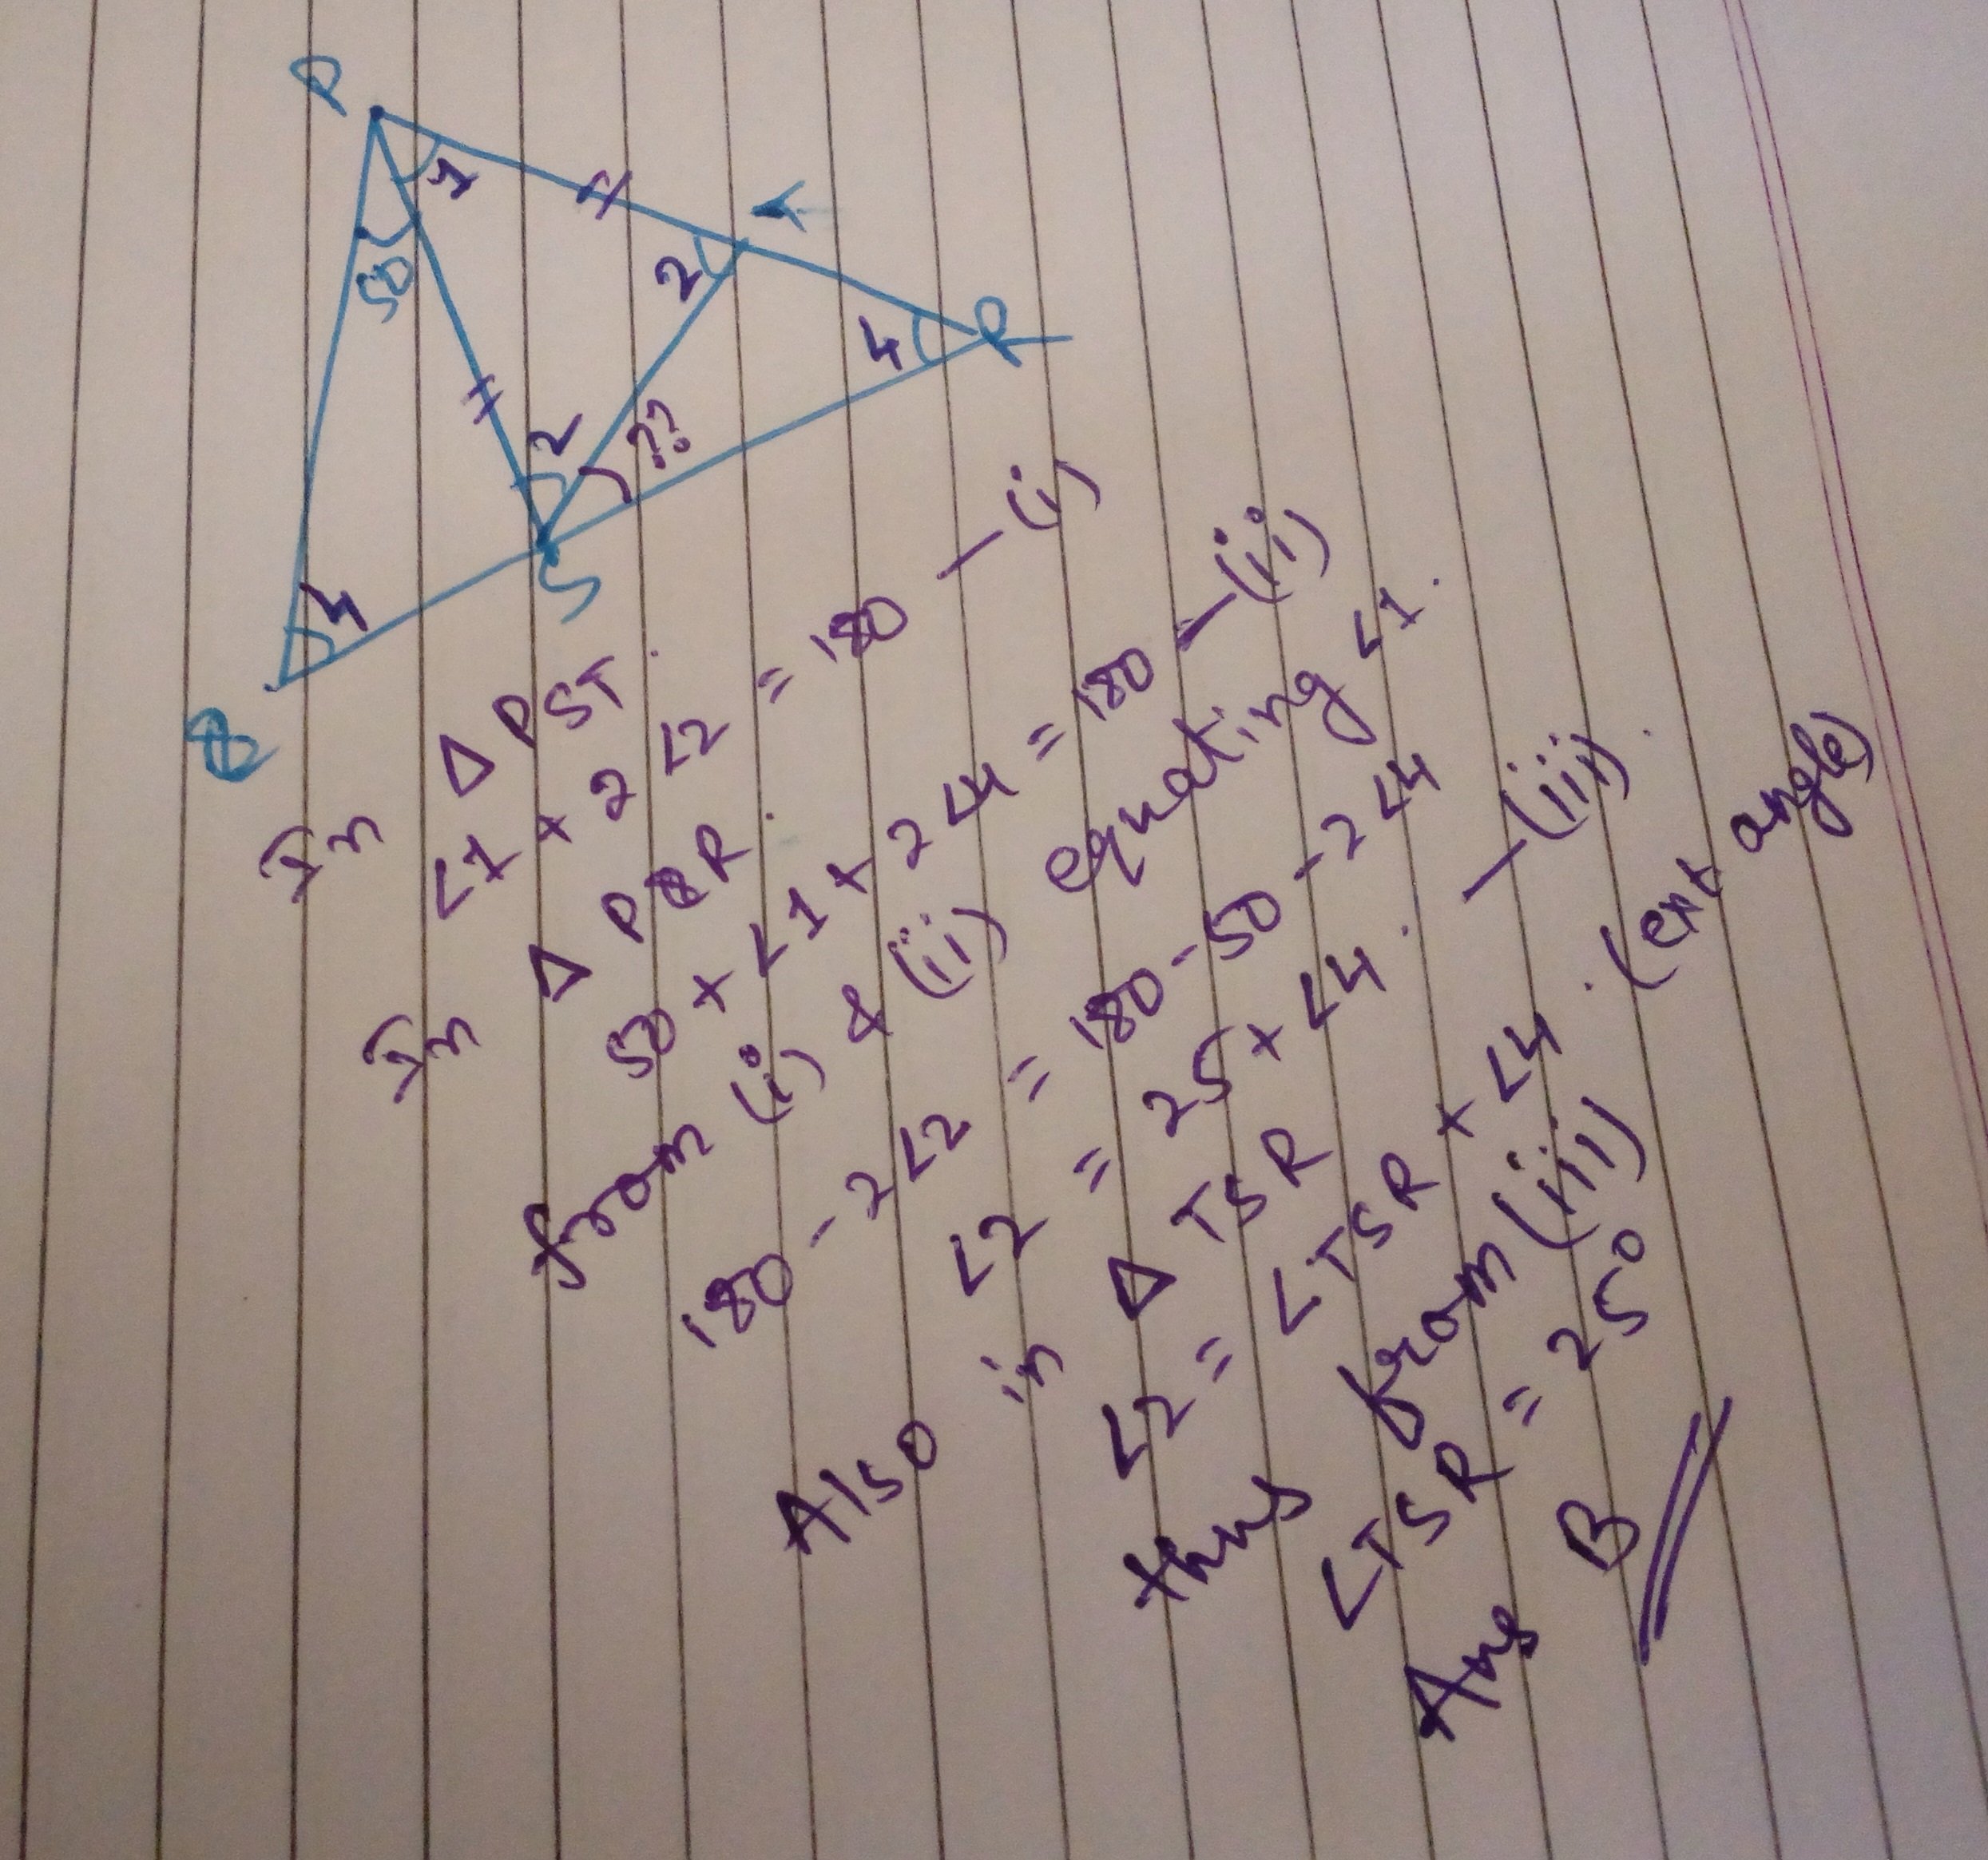 P
1
T
50
2
4
R
2
??
S
4
Q
In Δ PST.
<1 + 2 <2 = 180 — (i)
In Δ PQR.
50 + <1 + 2 <4 = 180 — (ii)
from (i) & (ii) equating <1.
180 - 2 <2 = 180 - 50 - 2 <4
<2 = 25 + <4. — (iii).
Also in Δ TSR
<2 = <TSR + <4. (ext angle)
thus from (iii)
<TSR = 25°
Ans B